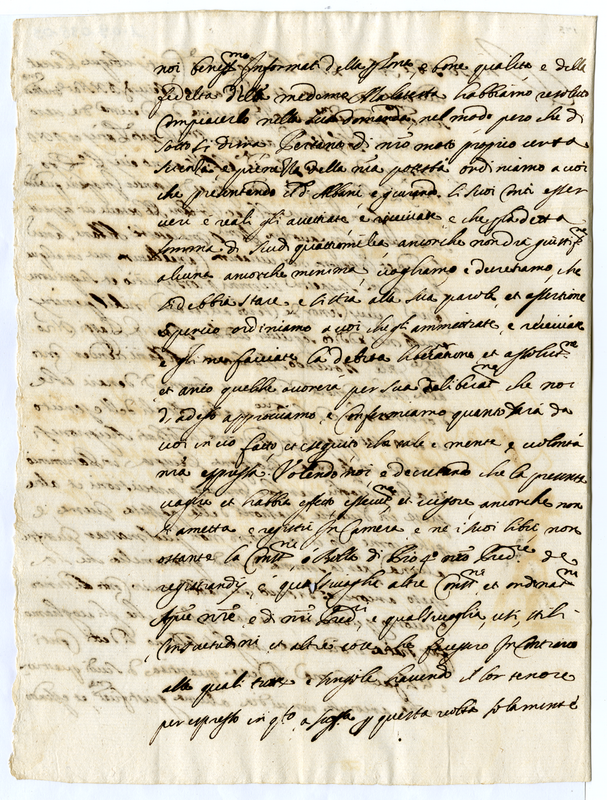 noi beniss.mo Informati della sorte, e bone qualità e della
fedeltà della medema habbiamo resoluto
Impiacerlo nella sua domanda, nel modo però che di
sotto si dirà Pertanto di nro moto proprio certa
scienza e pienezza della nra potestà ordiniamo a voi
che presentendo il d. Albini e giurando li suoi conti esser
veri e reali gli accettiate e riceviate e che p la detta
somma di scudi quattromilia ancorche non dia giustif.ne
alcuna ancorche minima, vogliamo, e decretiamo, che
si debbia stare, e si stia alla sua parola, et assertione
e perciò ordiniamo a voi che gli ammettiate, e riceviate
e gli ne facciate la debita liberatione, et assolut.ne
et anco quella per sua che noi
di adesso approviamo, e Confermiamo quanto sarà da
voi in ciò fatto et eseguito che tale è mente, e volontà
nra espressa Volendo noi e decretando che la presente
vaglia et habbia effetto et vigore ancorche non
si ametta e registri In Camera e ne i suoi libri non
ostante la Const.ne ò Bolla di Pio 4º nro Pred.re de
registrandis, e qualsivoglia altre Const.ni et ordinat.ni
Apce nre e di nri Pred.ri, e qualsivoglia, usi, stili
consuetudini et altre cose che facessero In Contrario
alle quali tutte e singole havendo il lor tenore
per espresso in qto a suff.a p questa volta solamente